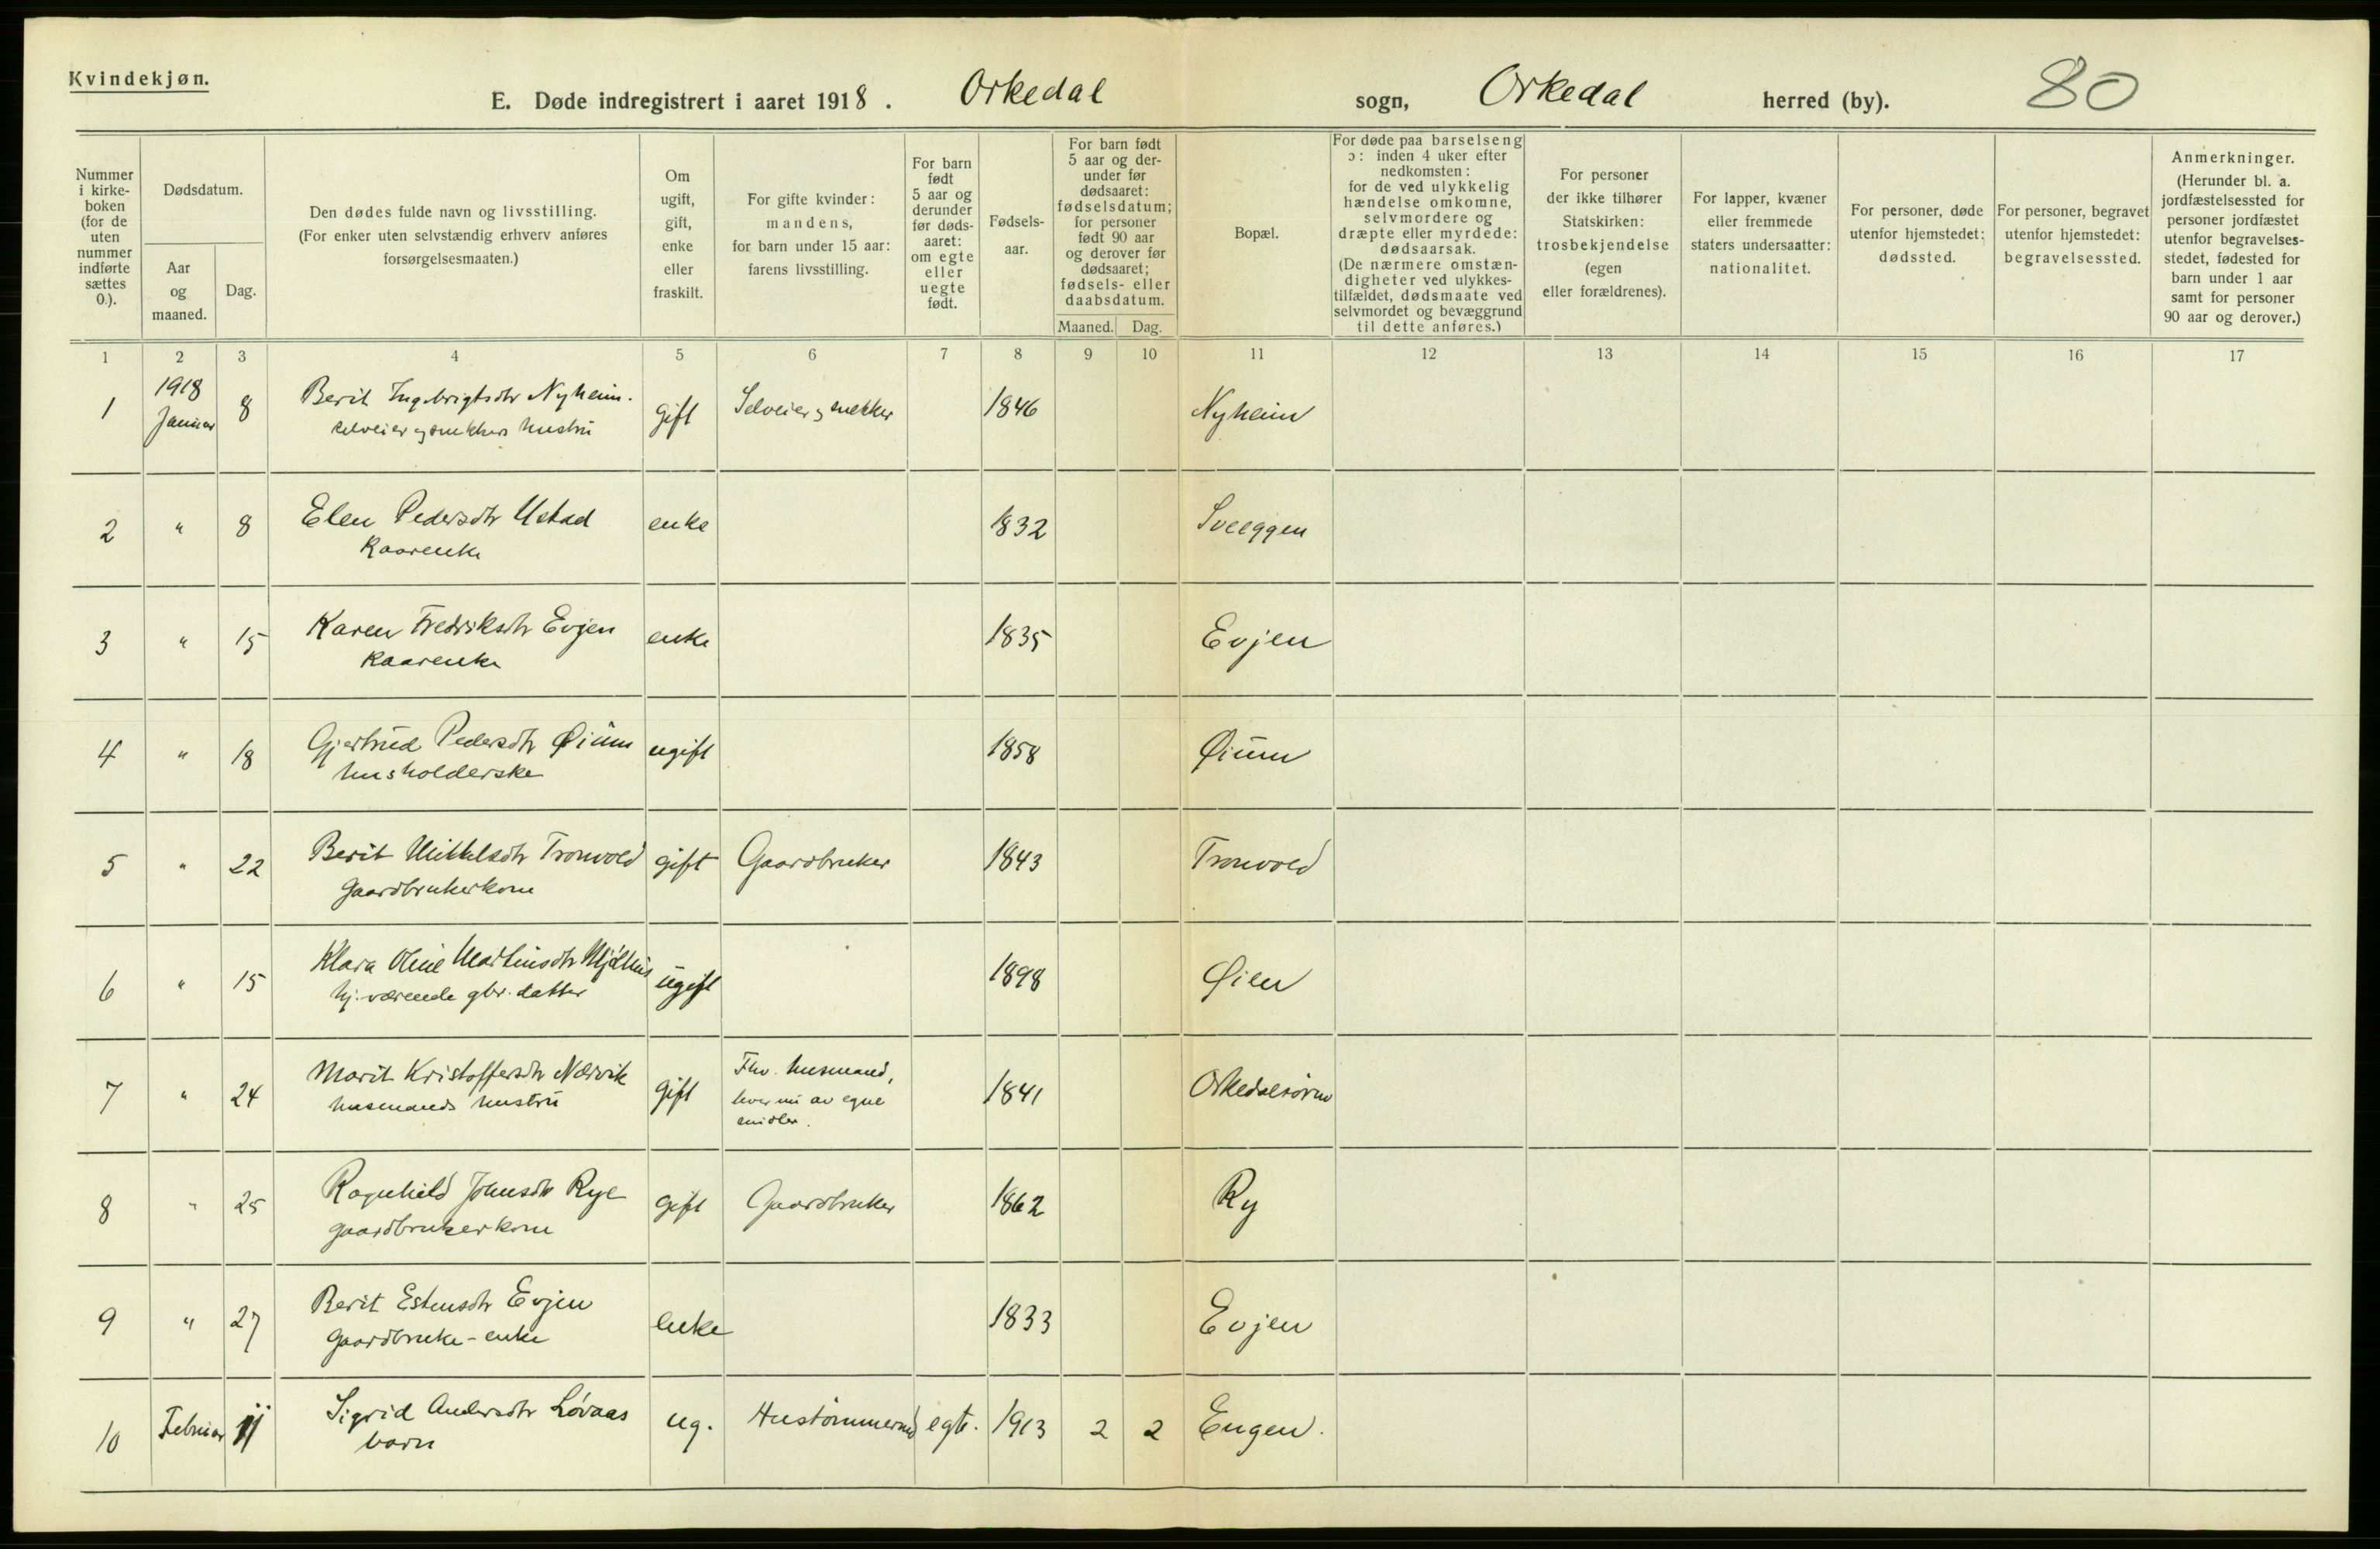 Kvindekjøn.
E. Døde indregistrert i aaret 1918. Orkedal sogn, Orkedal herred (by). 80
Nummer i kirkeboken (for de uten nummer indførte sættes 0.).
Dødsdatum.
Aar og maaned.
Dag.
Den dødes fulde navn og livsstilling. (For enker uten selvstændig erhverv anføres forsørgelsesmaaten.)
Om ugift, gift, enke eller fraskilt.
For gifte kvinder: mandens, for barn under 15 aar: farens livsstilling.
For barn født 5 aar og derunder før dødsaaret: om egte eller uegte født.
Fødselsaar.
For barn født 5 aar og derunder før dødsaaret: fødselsdatum; for personer født 90 aar og derover før dødsaaret; fødsels- eller daabsdatum.
Maaned. Dag.
Bopæl.
For døde paa barselseng ɔ: inden 4 uker efter nedkomsten: for de ved ulykkelig hændelse omkomne, selvmordere og dræpte eller myrdede: dødsaarsak. (De nærmere omstændigheter ved ulykkestilfældet, dødsmaate ved selvmordet og bevæggrund til dette anføres.)
For personer der ikke tilhører Statskirken: trosbekjendelse (egen eller forældrenes).
For lapper, kvæner eller fremmede staters undersaatter: nationalitet.
For personer, døde utenfor hjemstedet: dødssted.
For personer, begravet utenfor hjemstedet: begravelsessted.
Anmerkninger. (Herunder bl. a. jordfæstelsessted for personer jordfæstet utenfor begravelsesstedet, fødested for barn under 1 aar samt for personer 90 aar og derover.)
1 2 3 4 5 6 7 8 9 10 11 12 13 14 15 16 17
1 1918 Januar 8 Berit Ingebrigtsdtr Nyheim. gift Selveier og snekker 1846 Nyheim
selveier og snekkers hustru
2 " 8 Elen Pedersdtr Ustad enke 1832 Sveeggen
Kaarenke
3 " 15 Karen Fredriksdtr Evjen enke 1835 Evjen
Kaarenke
4 " 18 Gjertrud Pedersdtr Øium ugift 1858 Øium
husholderske
5 " 22 Berit Mikkelsdtr Tronvold gift Gaardbruker 1843 Tronvold
Gaardbrukerkone
6 " 15 Klara Oline Martinsdtr ugift 1898 Øien
hj. værende gbr. datter
7 " 24 Marit Kristoffersdtr Nærvik gift Fhv. husmand, 1841 Orkedalsøren
husmands hustru
lever nu av egne
midler.
8 " 25 Ragnhild Johnsdtr Rye gift Gaardbruker 1862 Ry
gaardbrukerkone
9 " 27 Berit Estensdtr Evjen enke 1833 Evjen
Gaardbruke-enke
10 Februar 11 Sigrid Andersdtr Løvaas ug. Hustømmermd egte. 1913 2 2 Engen.
barn